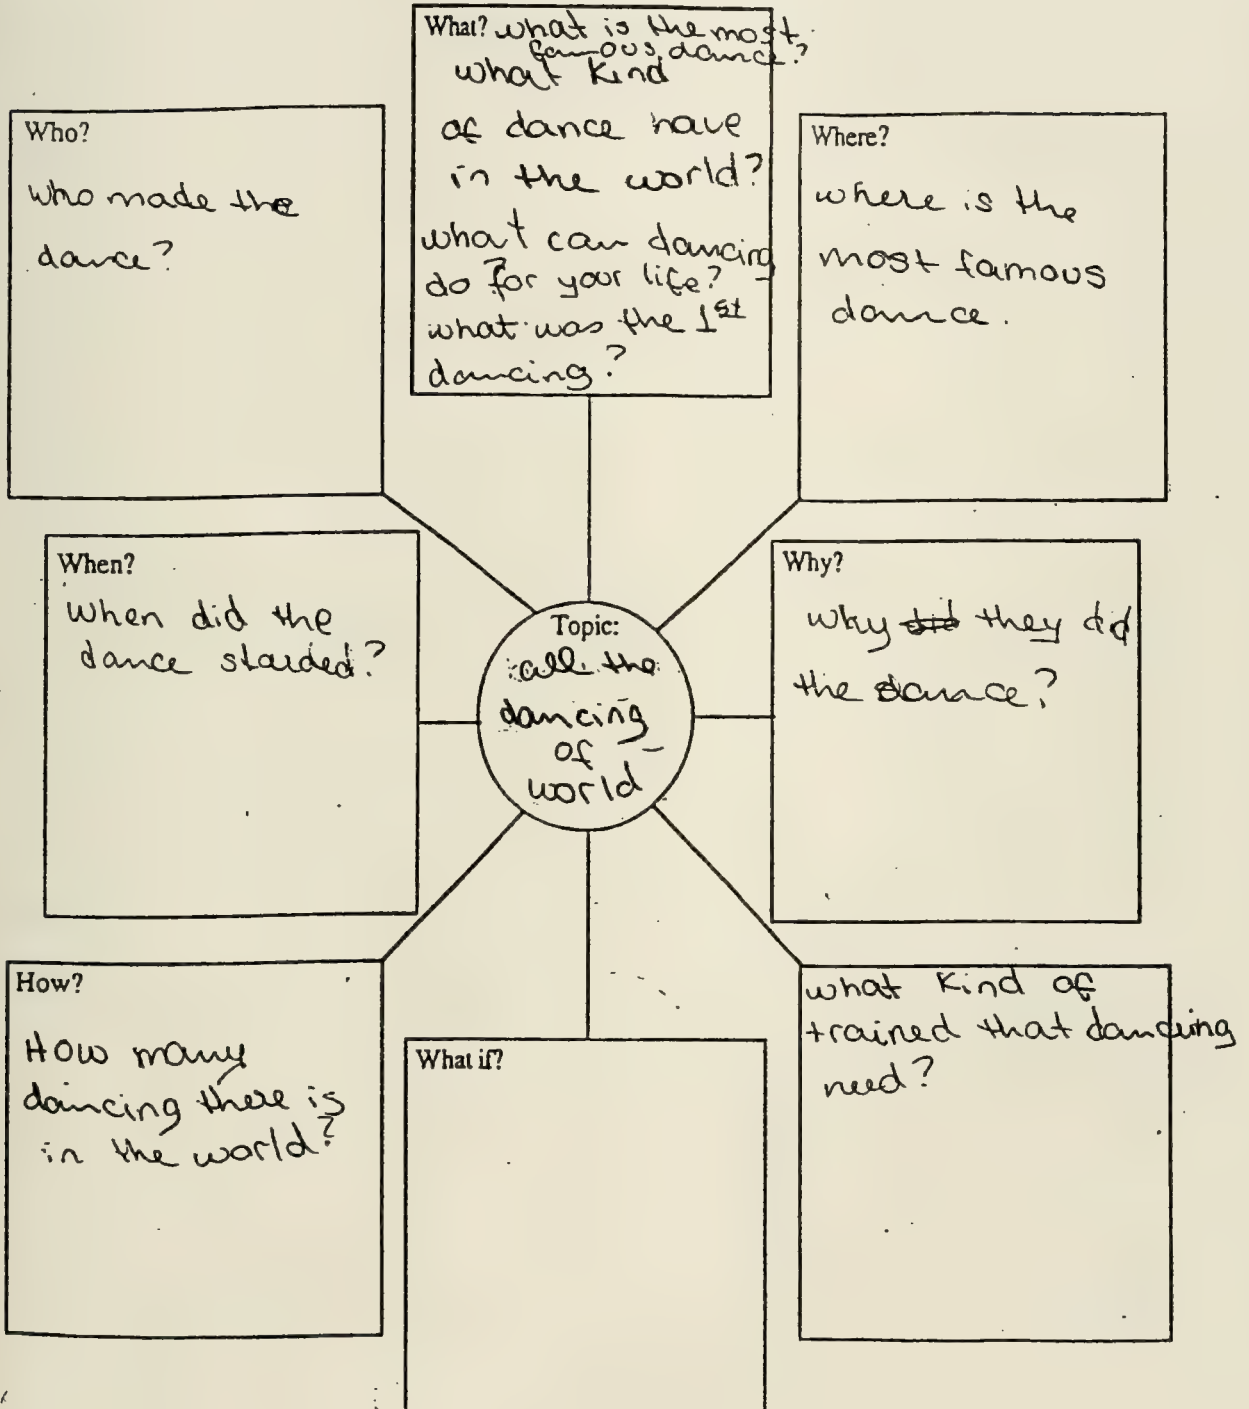 What? what is the most
famous dance?
what kind
of dance have
in the world?
what can dancing
do for your life?
what was the 1st
dancing?
Who?
who made the
dance?
Where?
where is the
most famous
dance.
When?
When did the
dance starded?
Topic:
all the
dancing
of
world
Why?
why did they did
the dance?
How?
How many
dancing there is
in the world?
What if?
what kind of
trained that dancing
need?